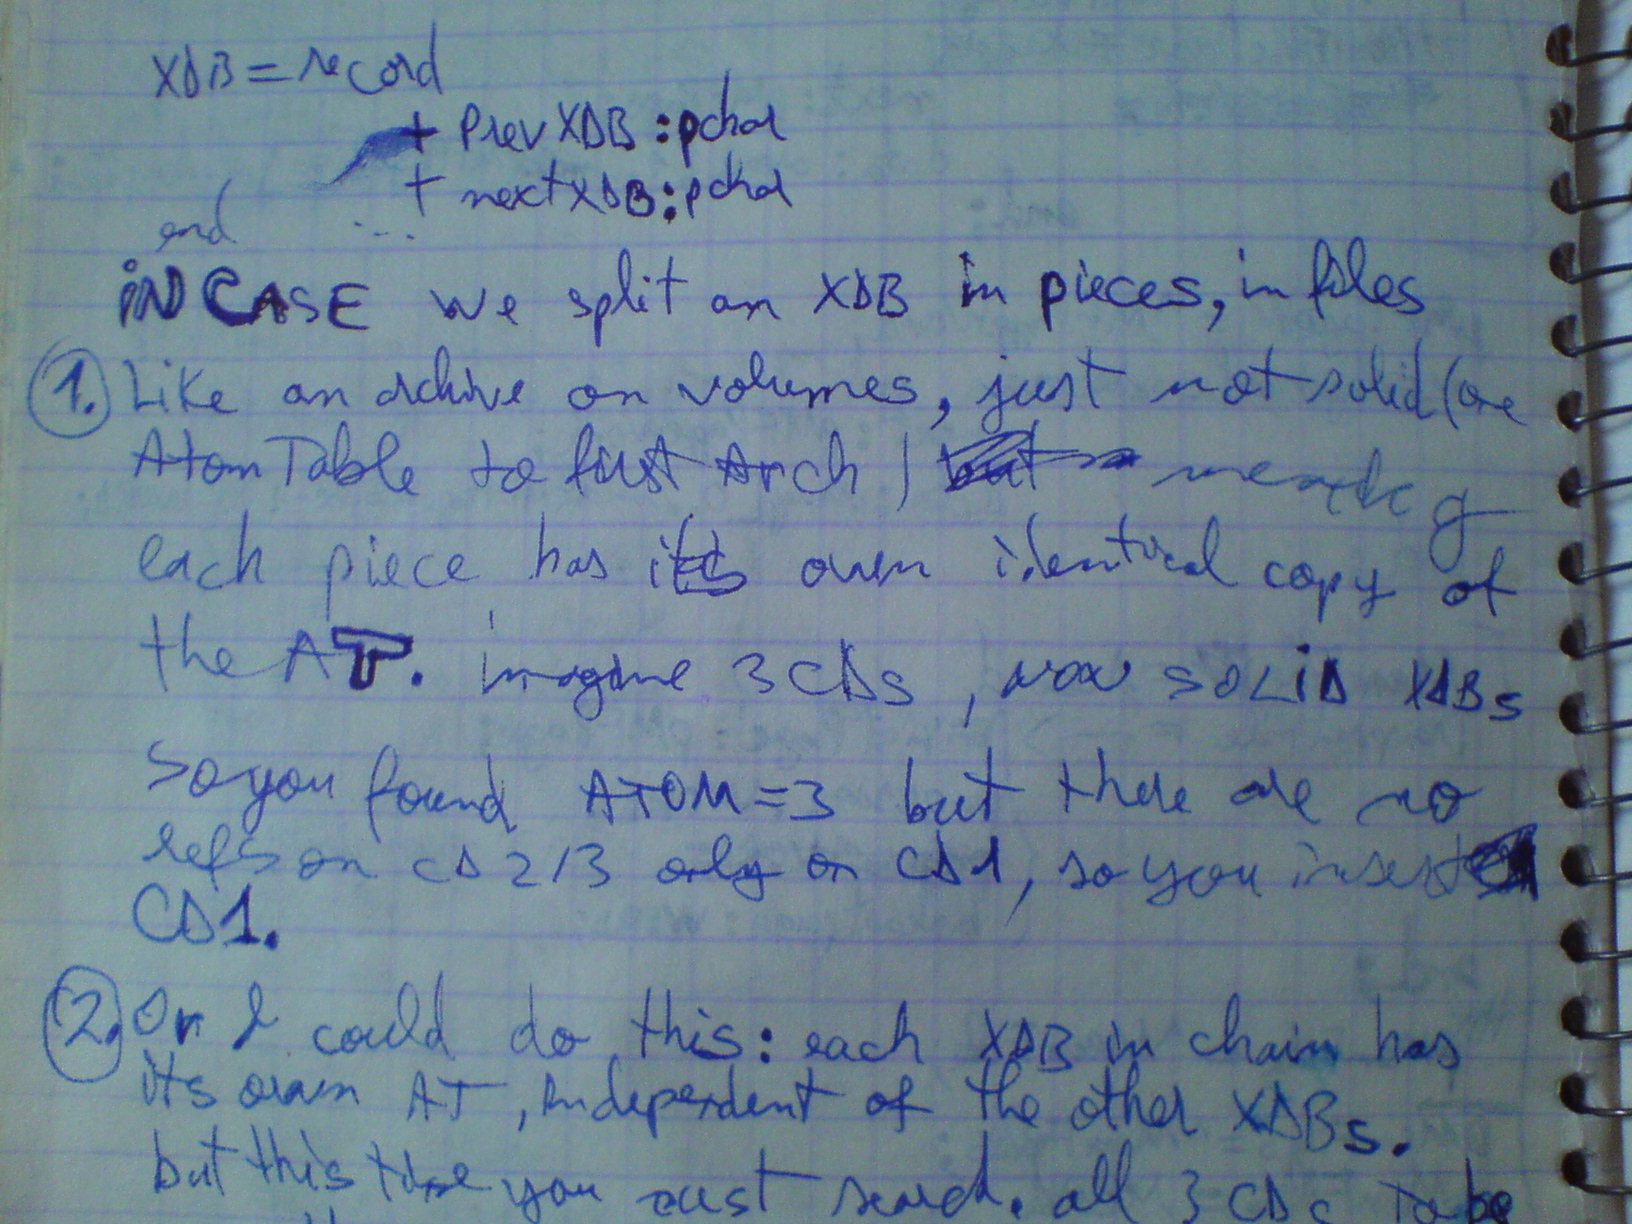 XDB = record
+ Prev XDB : pchar
+ next XDB : pchar
end ...
iN CASE we split an XDB in pieces, in files
1. Like an archive on volumes, just not solid (one
Atom Table to first Arch)
each piece has its own identical copy of
the AT. imagine 3 CDs, non SOLiD XDBs
So you found ATOM=3 but there are no
refs on CD 2/3 only on CD1, so you insert
CD1.
2. Or I could do this: each XDB in chain has
its own AT, independent of the other XDBs.
but this time you must search all 3 CDs To be